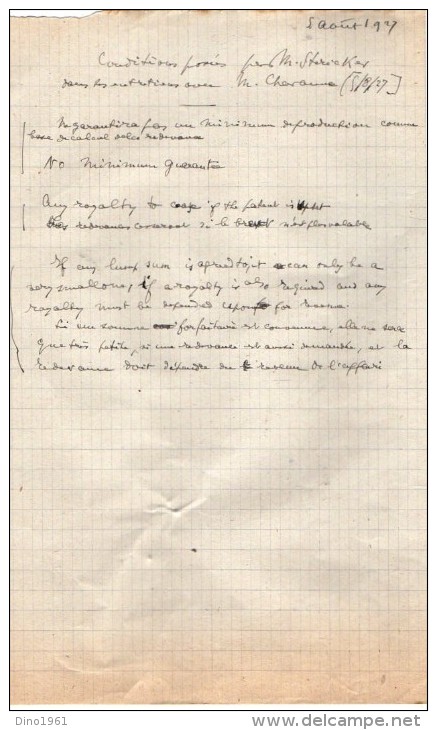 5 août 1927
Conditions posées par M. Stricker
dans les entretiens avec M. Chavanne [5/8/27]
Ne garantira pas un minimum de production comme
base de calcul de la redevance
No Minimum Guarantee
Any royalty to cease if the patent is
redevances cesseront si le brevet n'est plus valable
If any lump sum is agreed to, it can only be a
very small one, if a royalty is also required and any
royalty must be depended upon for revenue.
Si une somme forfaitaire est convenue, elle ne sera
que très petite, si une redevance est aussi demandée, et la
redevance doit dépendre du revenu de l'affaire
Dino1961